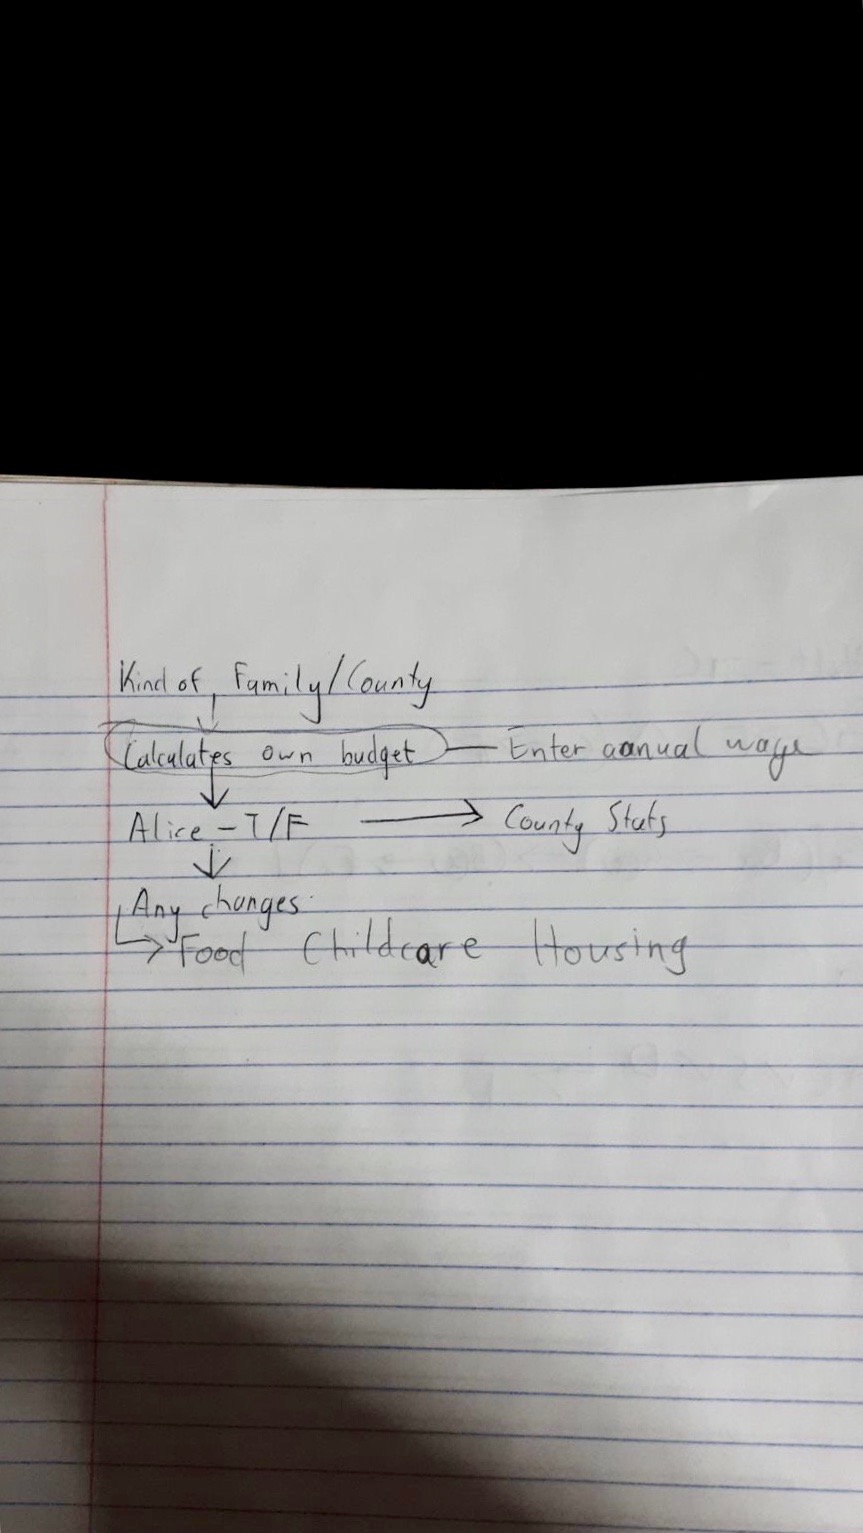 Kind of Family/County
Calculates own budget — Enter aanual wage
Alice - T/F → County Stats
Any changes:
Food Childcare Housing